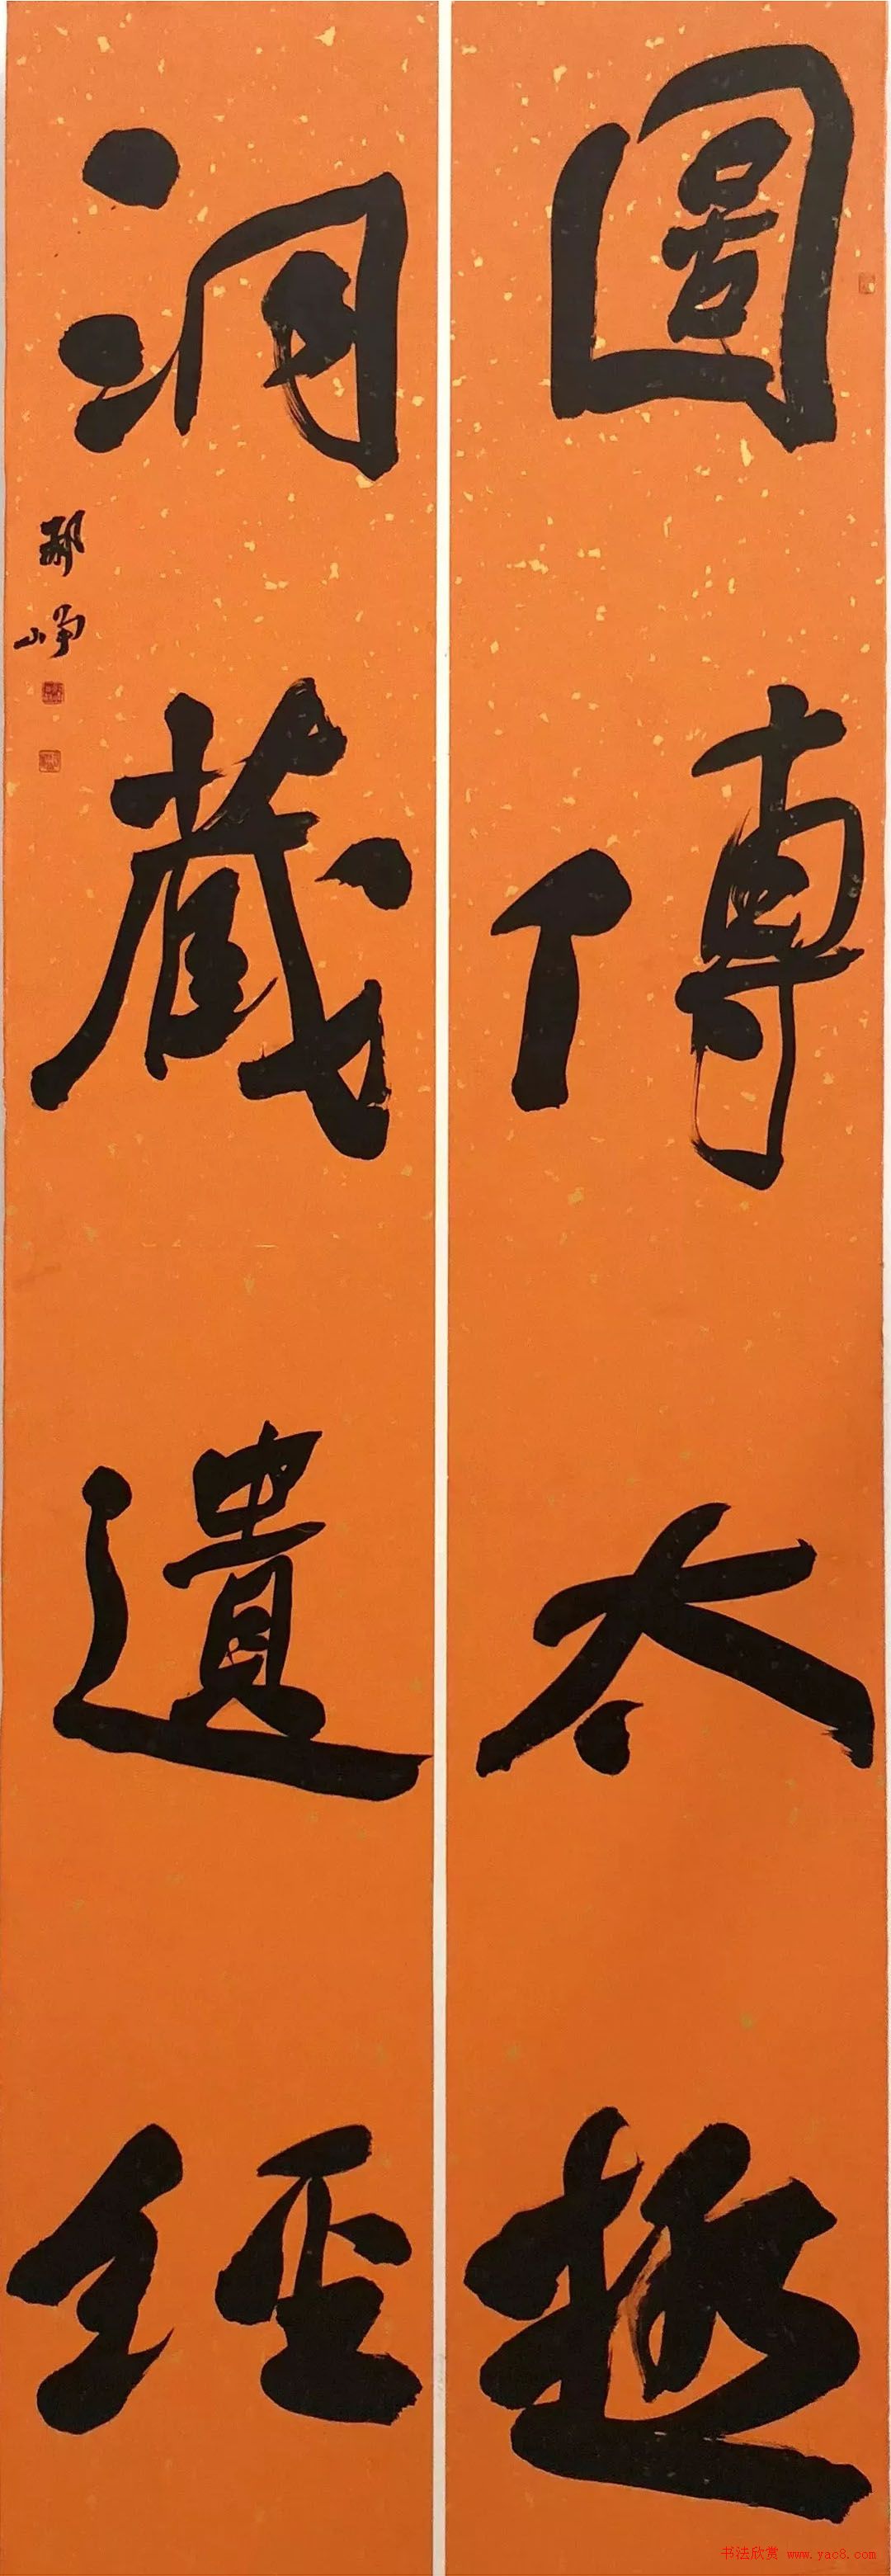 圖傳太極
洞藏遺經
峥
书法欣赏 www.yac8.com